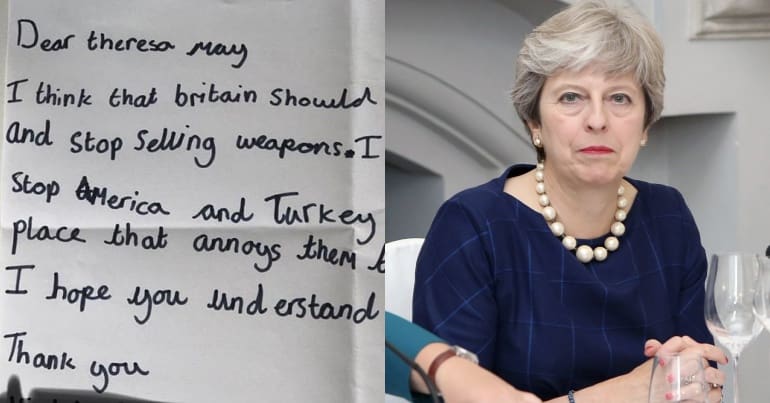 Dear theresa may
I think that britain should
and stop selling weapons. I
stop America and Turkey
place that annoys them
I hope you understand
Thank you